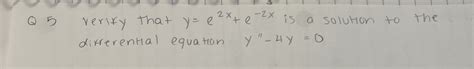 Q 5 verify that y = e^2x + e^-2x is a solution to the
differential equation y" - 4y = 0